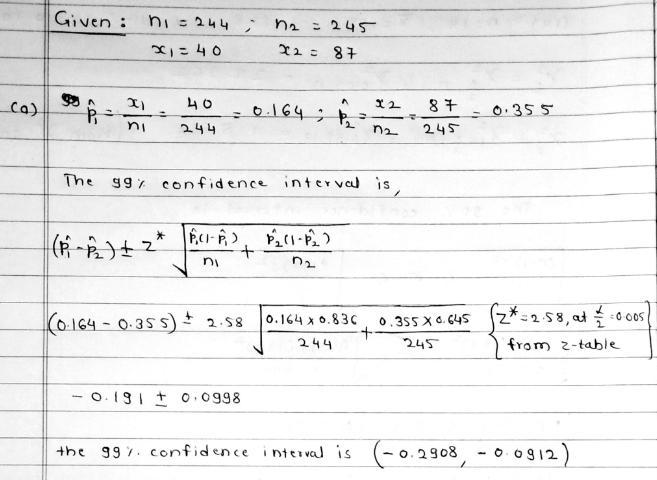 Given : n1 = 244 ; n2 = 245
x1 = 40 x2 = 87
(a) p̂1 = x1/n1 = 40/244 = 0.164 ; p̂2 = x2/n2 = 87/245 = 0.355
The 99% confidence interval is,
(p̂1 - p̂2) ± z* √(p̂1(1-p̂1)/n1 + p̂2(1-p̂2)/n2)
(0.164 - 0.355) ± 2.58 √(0.164 x 0.836/244 + 0.355 x 0.645/245) {z* = 2.58, at α/2 = 0.005
from z-table}
- 0.191 ± 0.0998
the 99%. confidence interval is (-0.2908, -0.0912)